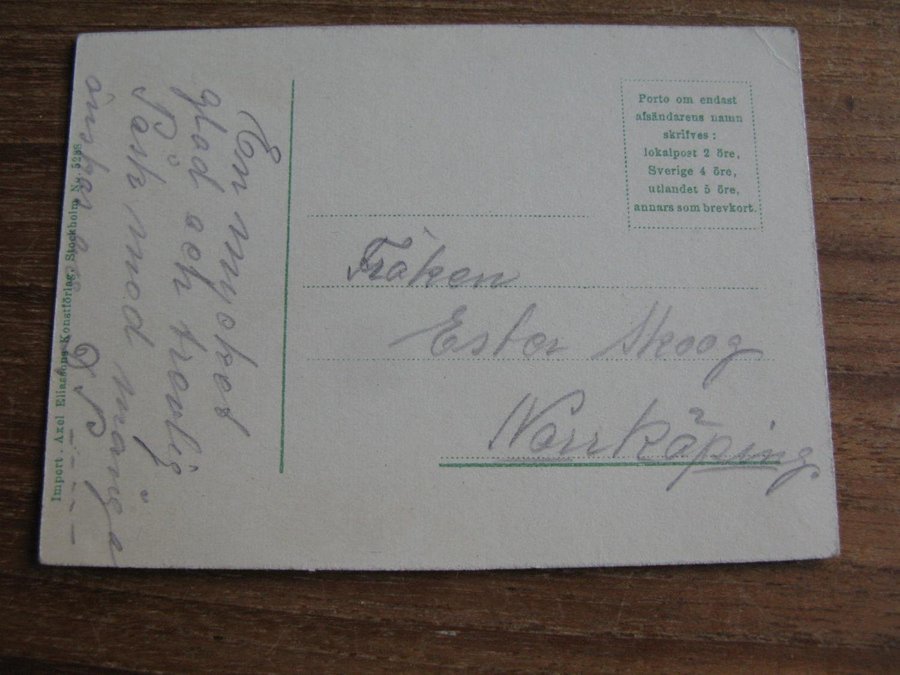 En mycket
glad och trevlig
Påsk med många
önskar
Import. Axel Eliassons Konstförlag, Stockholm. No. 5268
Porto om endast
afsändarens namn
skrifves:
lokalpost 2 öre,
Sverige 4 öre,
utlandet 5 öre,
annars som brevkort.
Fröken
Ester Skoog
Norrköping.